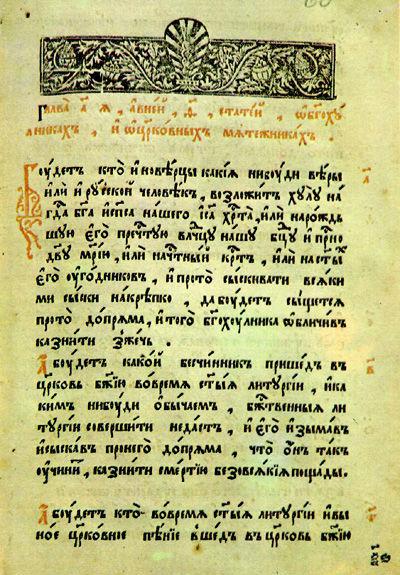 Глава а҃ я, а вней, ѳ҃, статей, ѡбг҃оху
лникахъ, и ѡцр҃ковныхъ мѧтежникахъ.
Боудетъ кто иновѣрцы какия нибоуди вѣры
или и роуской человѣкъ, возложитъ хулу на
гд҃а бг҃а и сп҃са нашего іс҃а хр҃та, или нарождь
шую его пречт҃ую влчц҃у нашу бц҃у и прн҃о
дв҃у мр҃ию, или начт҃ный крт҃ъ, или наст҃ыхъ
его оугодниковъ, и прото сыскивати всѧки
ми сыски накрѣпко, да боудетъ сыщетсѧ
прото допрѧма, и того бг҃охоулника ѡбличивъ
казнити зжечь.
а҃ боудетъ какой бесчинникъ пришедъ въ
цр҃ковь бж҃ию вовремѧ ст҃ыѧ литургіи, и ка
кимъ нибоуди обычаемъ, бжт҃венныѧ ли
тургіи совершити недастъ, и его изымавъ
и сыскавъ пронего допрѧма, что онъ такъ
оучинитъ, казнити смертию безовсѧкиѧ пощады.
а҃ боудетъ кто вовремѧ ст҃ыѧ литургіи и вы
ное цр҃ковное пѣние вшедъ въ цр҃ковь бж҃ию